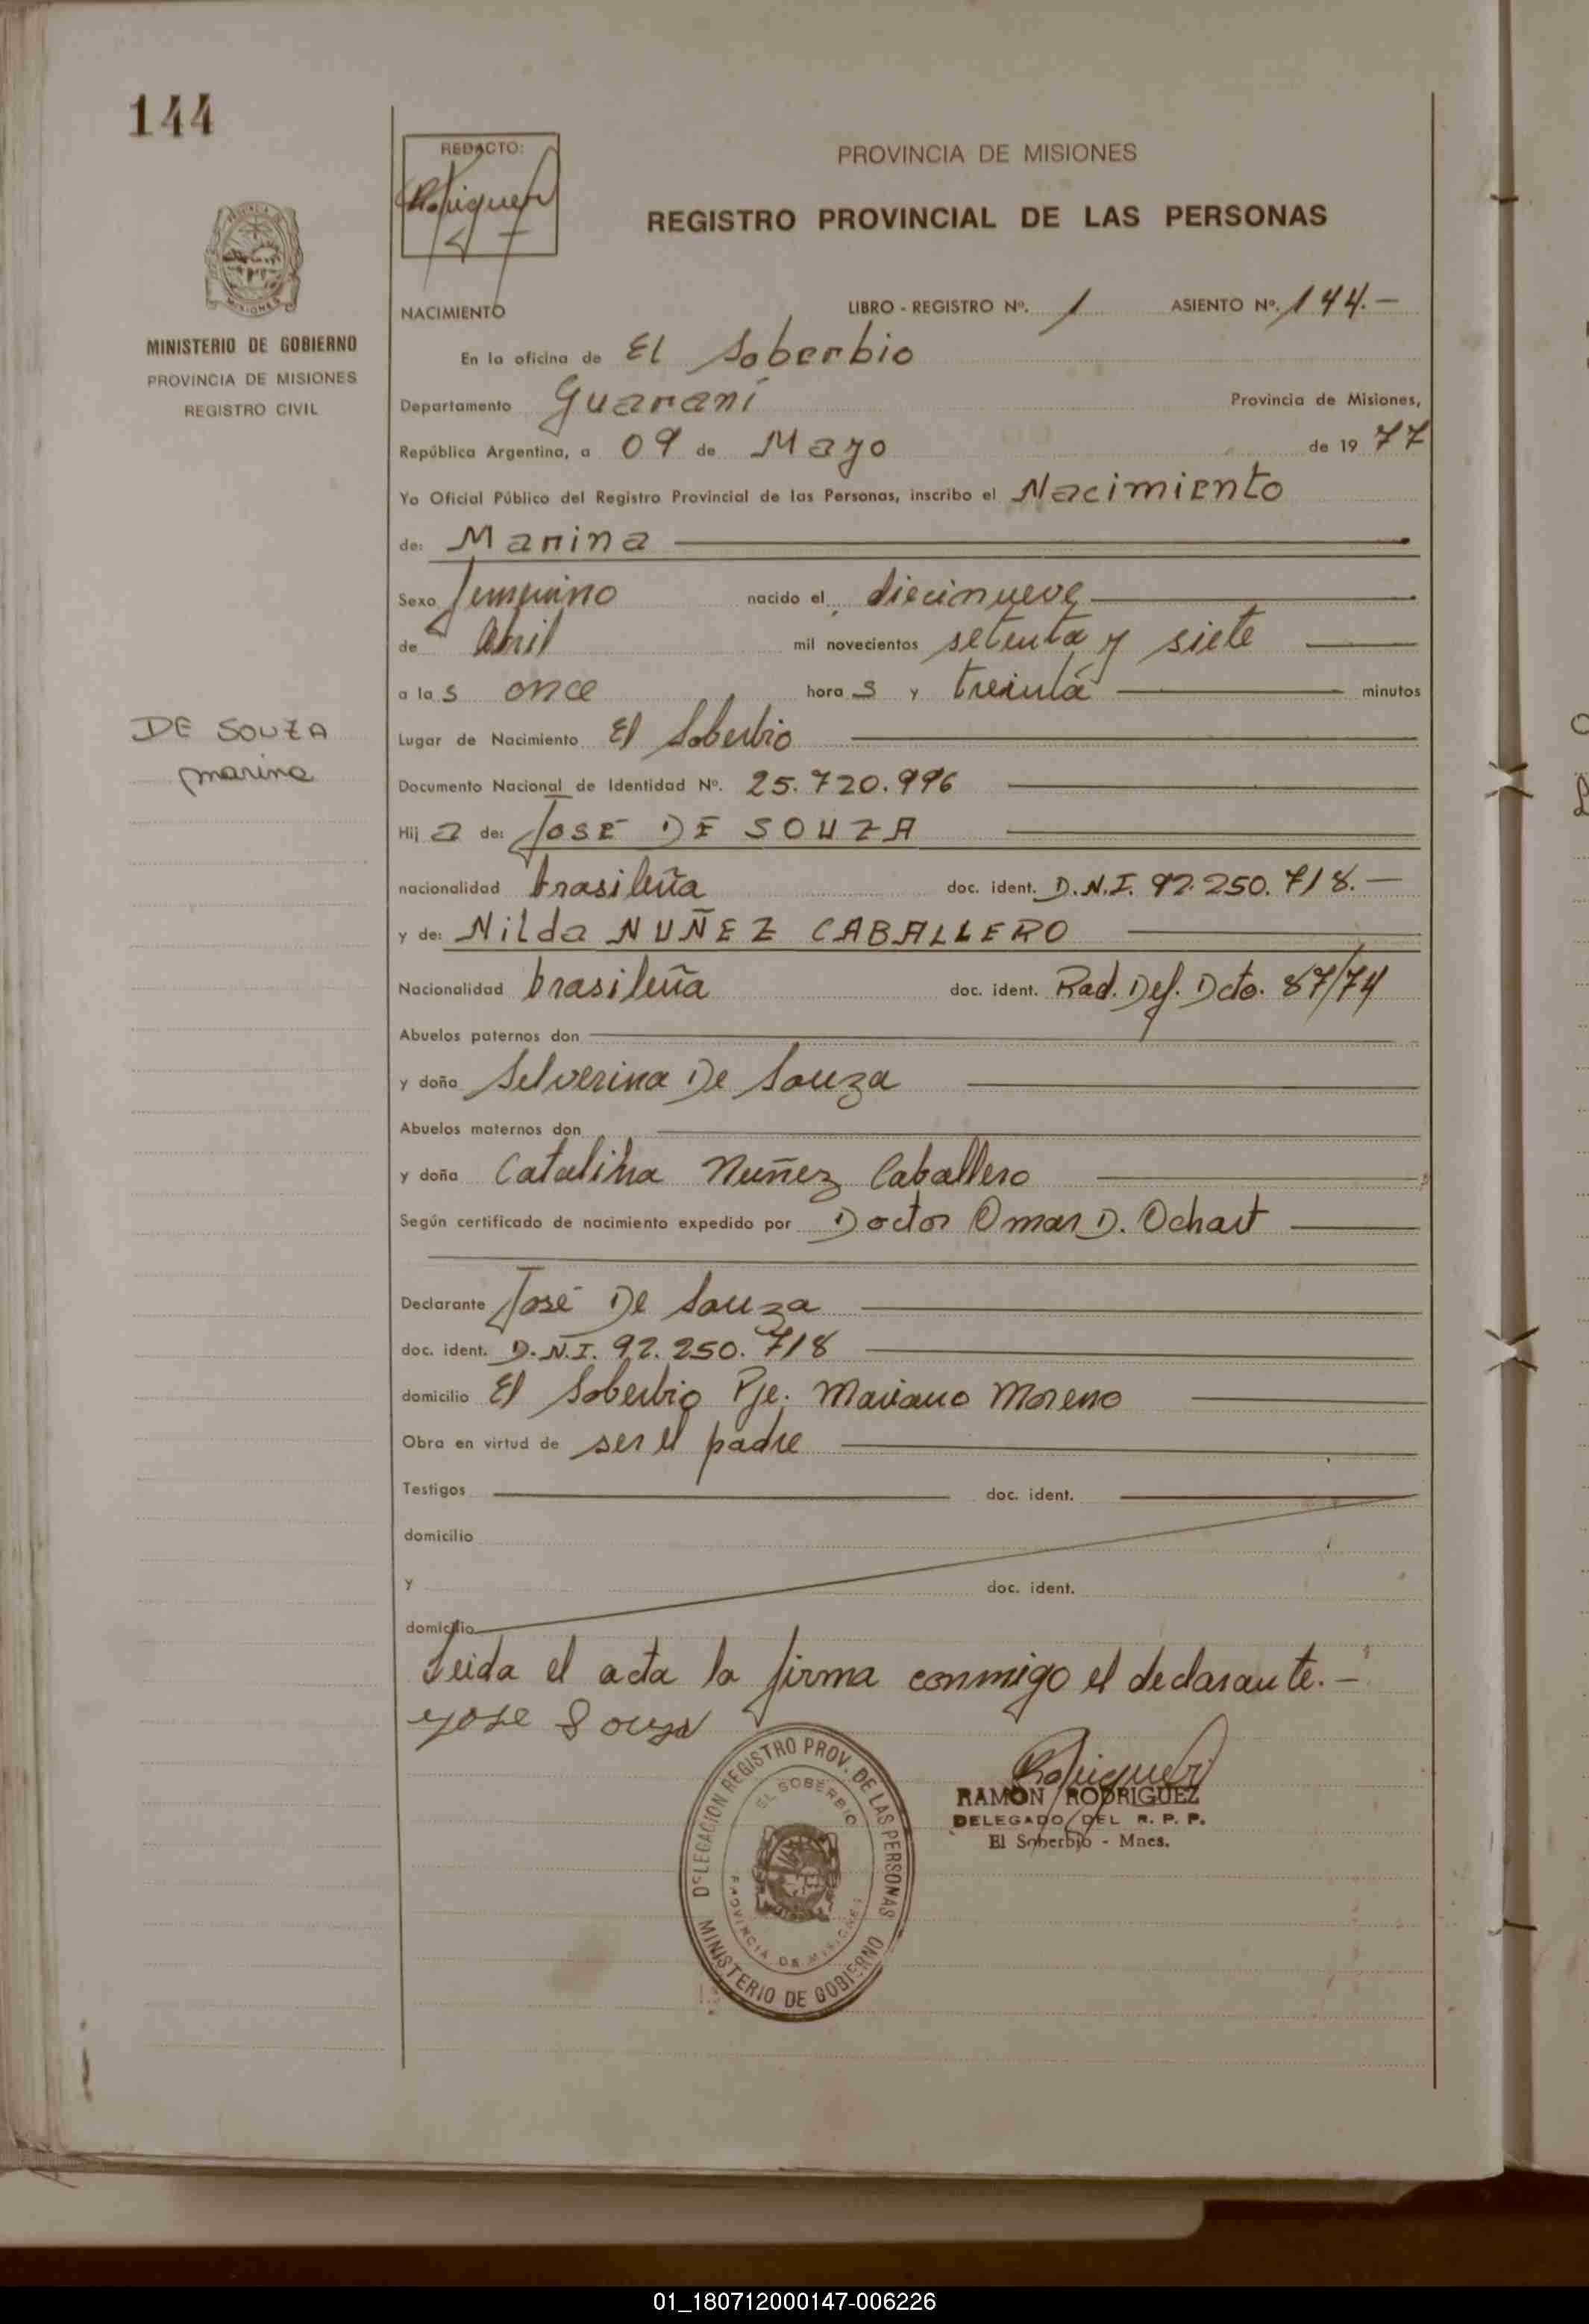 144
REDACTO:
Rodriguez
PROVINCIA DE MISIONES
REGISTRO PROVINCIAL DE LAS PERSONAS
MINISTERIO DE GOBIERNO
PROVINCIA DE MISIONES
REGISTRO CIVIL
NACIMIENTO LIBRO - REGISTRO Nº. 1 ASIENTO Nº. 144.-
En la oficina de El Soberbio
Departamento Guaraní Provincia de Misiones,
República Argentina, a 09 de Mayo de 19 77
Yo Oficial Público del Registro Provincial de las Personas, inscribo el Nacimiento
de: Marina
Sexo femenino nacido el diecinueve
de abril mil novecientos setenta y siete
a la s once hora s y treinta minutos
DE SOUZA
marina
Lugar de Nacimiento El Soberbio
Documento Nacional de Identidad Nº. 25.720.996
Hij a de: José DE SOUZA
nacionalidad brasileña doc. ident. D.N.I. 92.250.718.-
y de: Nilda NUÑEZ CABALLERO
Nacionalidad brasileña doc. ident. Rad. Def. Dcto. 87/74
Abuelos paternos don
y doña Selverina De Souza
Abuelos maternos don
y doña Catalina Nuñez Caballero
Según certificado de nacimiento expedido por Doctor Omar D. Ochart
Declarante José De Souza
doc. ident. D.N.I. 92.250.718
domicilio El Soberbio Pje. Mariano Moreno
Obra en virtud de ser el padre
Testigos doc. ident.
domicilio
y doc. ident.
domicilio
Leida el acta la firma conmigo el declarante.-
yose Souza
DELEGACION REGISTRO PROV. DE LAS PERSONAS
EL SOBERBIO
PROVINCIA DE MISIONES
MINISTERIO DE GOBIERNO
Rodriguez
RAMON RODRIGUEZ
DELEGADO DEL R. P. P.
El Soberbio - Mnes.
01_180712000147-006226